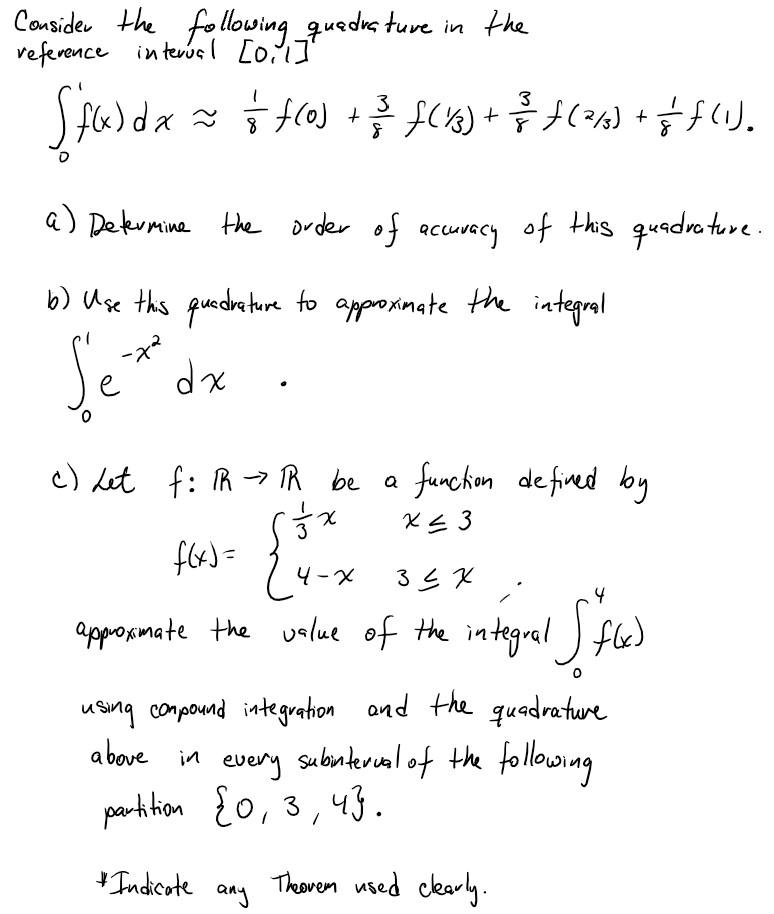 Consider the following quadrature in the
reference interval [0,1]
∫₀¹ f(x) dx ≈ 1/8 f(0) + 3/8 f(1/3) + 3/8 f(2/3) + 1/8 f(1).
a) Determine the order of accuracy of this quadrature.
b) Use this quadrature to approximate the integral
∫₀¹ e^{-x²} dx .
c) Let f: ℝ → ℝ be a function defined by
f(x) = { 1/3 x x ≤ 3
4-x 3 ≤ x ;
approximate the value of the integral ∫₀⁴ f(x)
using compound integration and the quadrature
above in every subinterval of the following
partition {0, 3, 4}.
*Indicate any Theorem used clearly.